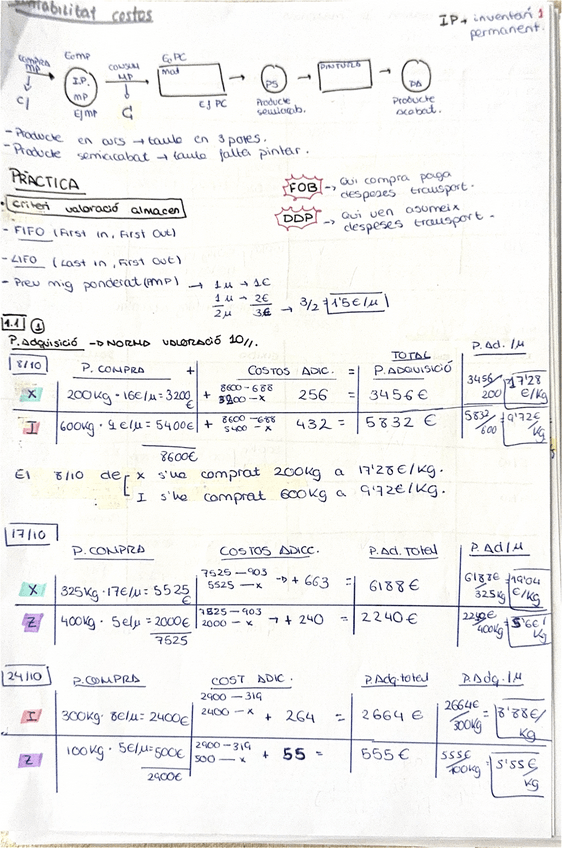 Comptabilitat costos
IP → inventari 1
permanent.
COMPRA MP
EoMP
CONSUM MP
Eo PC
Mat
PINTURA
I.P. MP
PS
PA
CI
EfMP
C
Ef PC
Producte semiacab.
Producte acabat.
- Producte en curs → taula en 3 potes.
- Producte semiacabat → taula falta pintar.
PRÀCTICA
FOB → Qui compra paga
despeses transport.
• Criteri valoració almacen
DDP → Qui ven asumeix
despeses transport.
- FIFO (First in, First Out)
- LIFO (Last in, First Out)
- Preu mig ponderat (PMP) → 1u → 1€
1u → 2€
2u 3€ → 3/2 = 1'5€/u
1.1 ①
P. Adquisició → NORMA VALORACIÓ 10//.
8/10 P. COMPRA + COSTOS ADIC. = TOTAL P. ADQUISICIÓ P. Ad. /u
X 200kg · 16€/u = 3200€ + 8600-688 3200-x 256 = 3456€ 3456/200 = 17'28 €/kg
I 600kg · 9€/u = 5400€ + 8600-688 5400-x 432 = 5832€ 5832/600 = 9'72€/kg
8600€
El 8/10 de [ X s'ha comprat 200kg a 17'28€/kg.
I s'ha comprat 600kg a 9'72€/kg.
17/10 P. COMPRA COSTOS ADICC. P. Ad. Total P. Ad/u
X 325kg · 17€/u = 5525€ 7525-903 5525-x → + 663 = 6188€ 6188€/325kg = 19'04 €/kg
Z 400kg · 5€/u = 2000€ 7525-903 2000-x → + 240 = 2240€ 2240€/400kg = 5'6€/kg
7525
24/10 P. COMPRA COST ADIC. P. Adq. total P. Adq. /u
I 300kg · 8€/u = 2400€ 2900-319 2400-x + 264 = 2664€ 2664€/300kg = 8'88€/kg
Z 100kg · 5€/u = 500€ 2900-319 500-x + 55 = 555€ 555€/100kg = 5'55€/kg
2900€